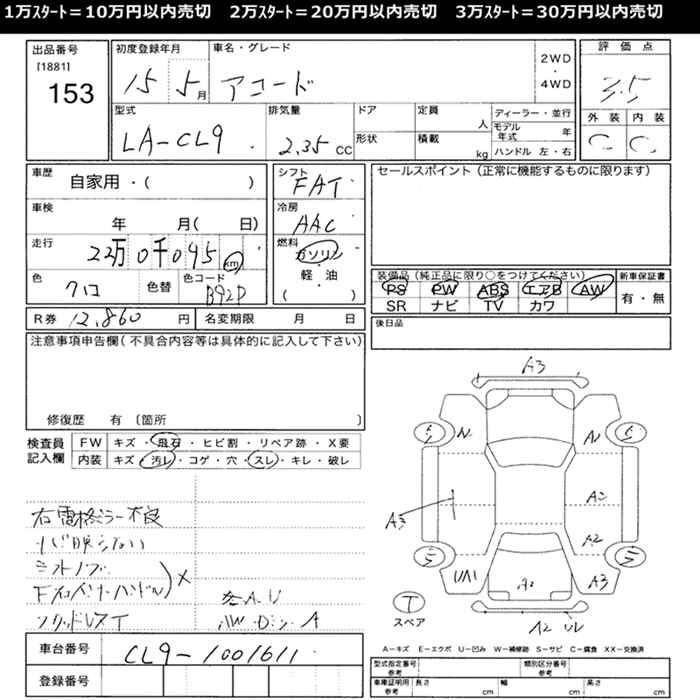 1万スタート＝10万円以内売切　2万スタート＝20万円以内売切　3万スタート＝30万円以内売切
出品番号
[1881]
153
初度登録年月
15 5月
車名・グレード
アコード
2WD・4WD
評価点
3.5
外装 内装
C C
型式
LA-CL9
排気量
2.35 CC
ドア
形状
定員 人
積載 kg
ディーラー・並行
モデル年式 年
ハンドル 左・右
車歴
自家用・( )
シフト
FAT
セールスポイント（正常に機能するものに限ります）
車検
年 月( 日)
冷房
AAC
走行
22万0千095 km
燃料
ガソリン
軽・油
( )
色
クロ
色替
色コード
B92P
装備品（純正品に限り○をつけてください）
PS PW ABS エアB AW
SR ナビ TV カワ
新車保証書
有・無
R券 12,860 円
名変期限 月 日
後日品
注意事項申告欄（不具合内容等は具体的に記入して下さい）
修復歴 有 〔箇所 〕
検査員記入欄
FW キズ・飛石・ヒビ割・リペア跡・X要
内装 キズ・汚レ・コゲ・穴・スレ・キレ・破レ
右電格ミラー不良
シフトノブ
X
各A.U
AW・ダシ・A
A3
A2
A2
A3
A3
UA1
A2
T
スペア
A－キズ E－エクボ U－凹み W－補修跡 S－サビ C－腐食 XX－交換済
車台番号
CL9-1001611
登録番号
型式指定番号
参考
類別区分番号
参考
車庫証明用
参考
長さ cm
幅 cm
高さ cm